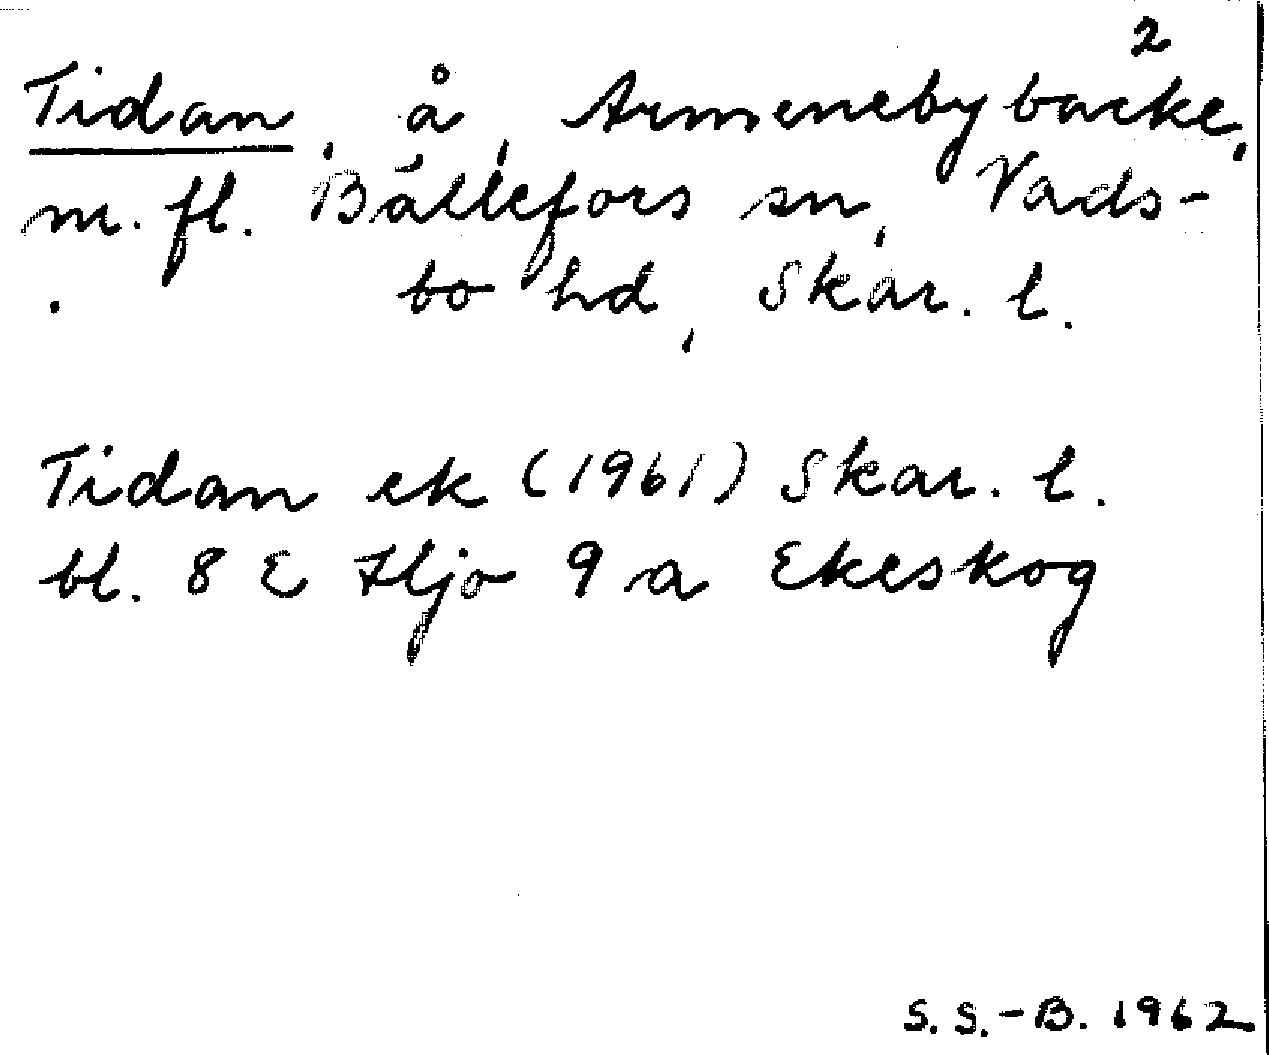 2
Tidan, å, Armenebybacke,
m. fl. Bällefors sn, Vads-
bo hd, Skar. l.
Tidan ek (1961) Skar. l.
bl. 8 E Hjo 9 a Ekeskog
S. S.-B. 1962